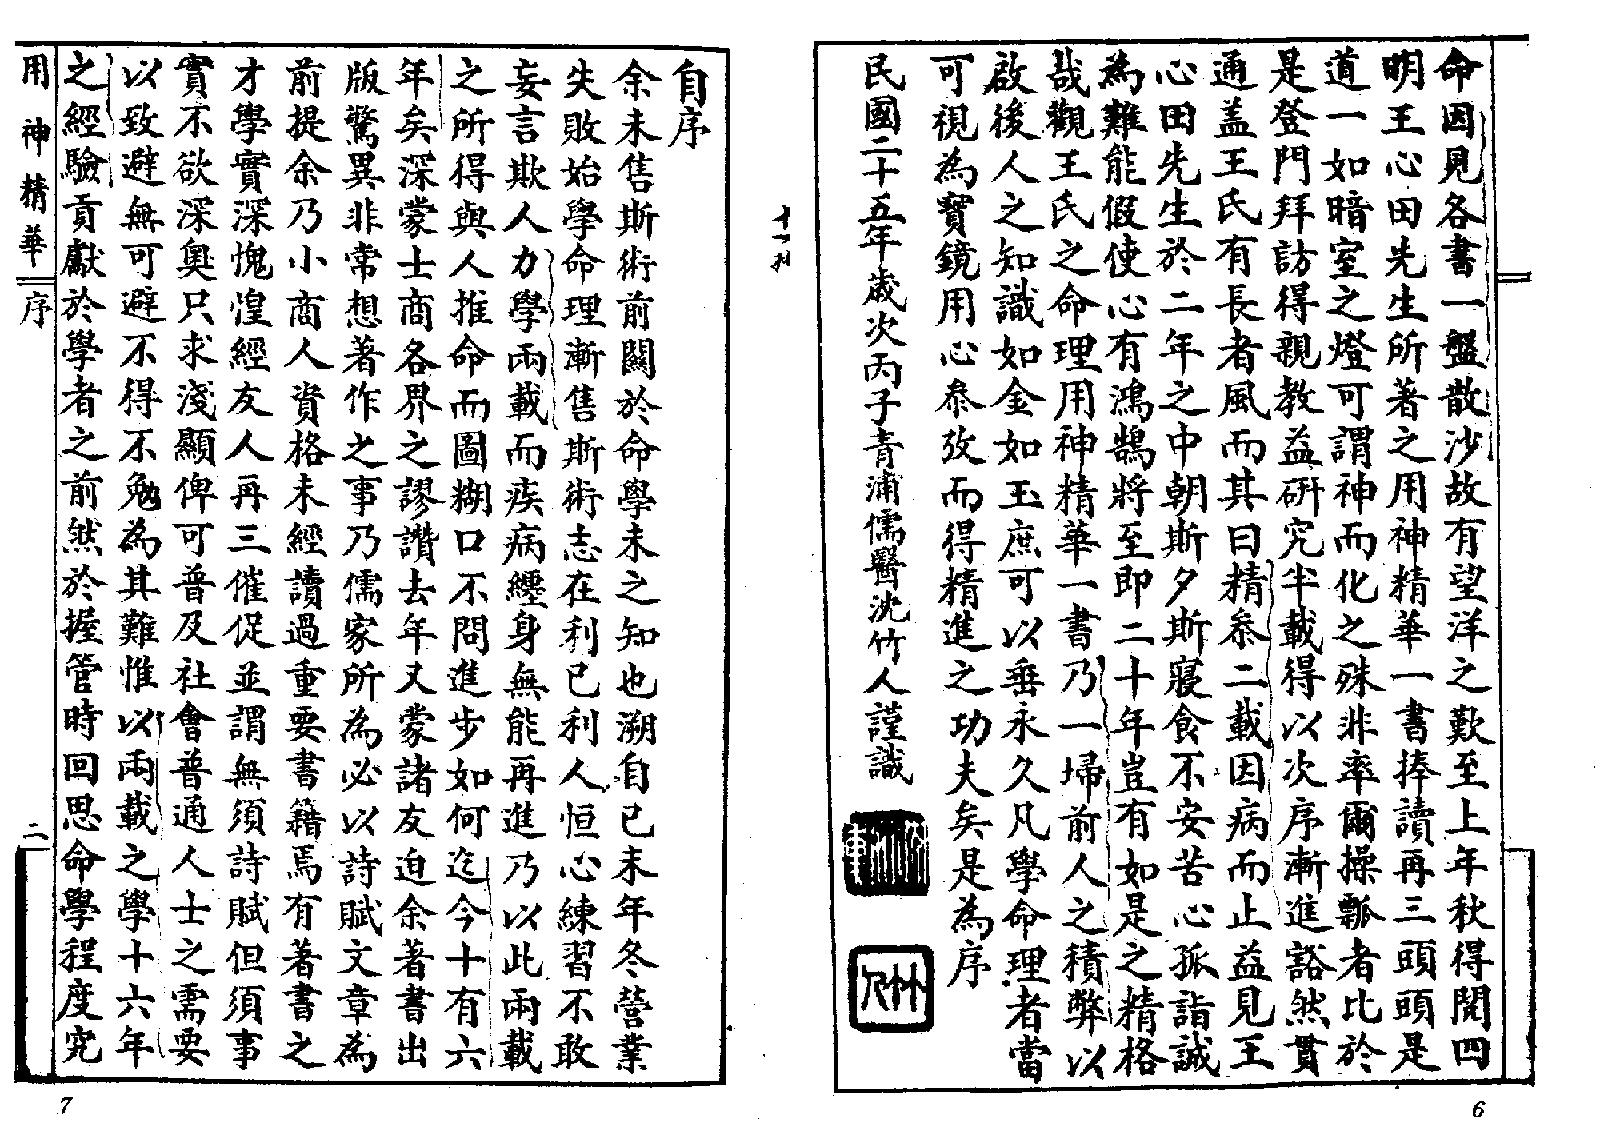 命因見各書一盤散沙故有望洋之歎至上年秋得閱四
明王心田先生所著之用神精華一書捧讀再三頭頭是
道一如暗室之燈可謂神而化之殊非率爾操瓢者比於
是登門拜訪得親教益研究半載得以次序漸進豁然貫
通盖王氏有長者風而其曰精叅二載因病而止益見王
心田先生於二年之中朝斯夕斯寢食不安苦心孤詣誠
為難能假使心有鴻鵠將至即二十年豈有如是之精格
哉觀王氏之命理用神精華一書乃一埽前人之積弊以
啟後人之知識如金如玉庶可以垂永久凡學命理者當
可視為寳鏡用心叅攷而得精進之功夫矣是為序
民國二十五年歲次丙子青浦儒醫沈竹人謹識
竹人
6
自序
余未售斯術前關於命學未之知也溯自己未年冬營業
失敗始學命理漸售斯術志在利己利人恒心練習不敢
妄言欺人力學兩載而疾病纏身無能再進乃以此兩載
之所得與人推命而圖糊口不問進步如何迄今十有六
年矣深蒙士商各界之謬讚去年又蒙諸友迫余著書出
版驚異非常想著作之事乃儒家所為必以詩賦文章為
前提余乃小商人資格未經讀過重要書籍焉有著書之
才學實深愧惶經友人再三催促並謂無須詩賦但須事
實不欲深奧只求淺顯俾可普及社會普通人士之需要
以致避無可避不得不勉為其難惟以兩載之學十六年
之經驗貢獻於學者之前然於握管時回思命學程度究
用神精華
序
二
7